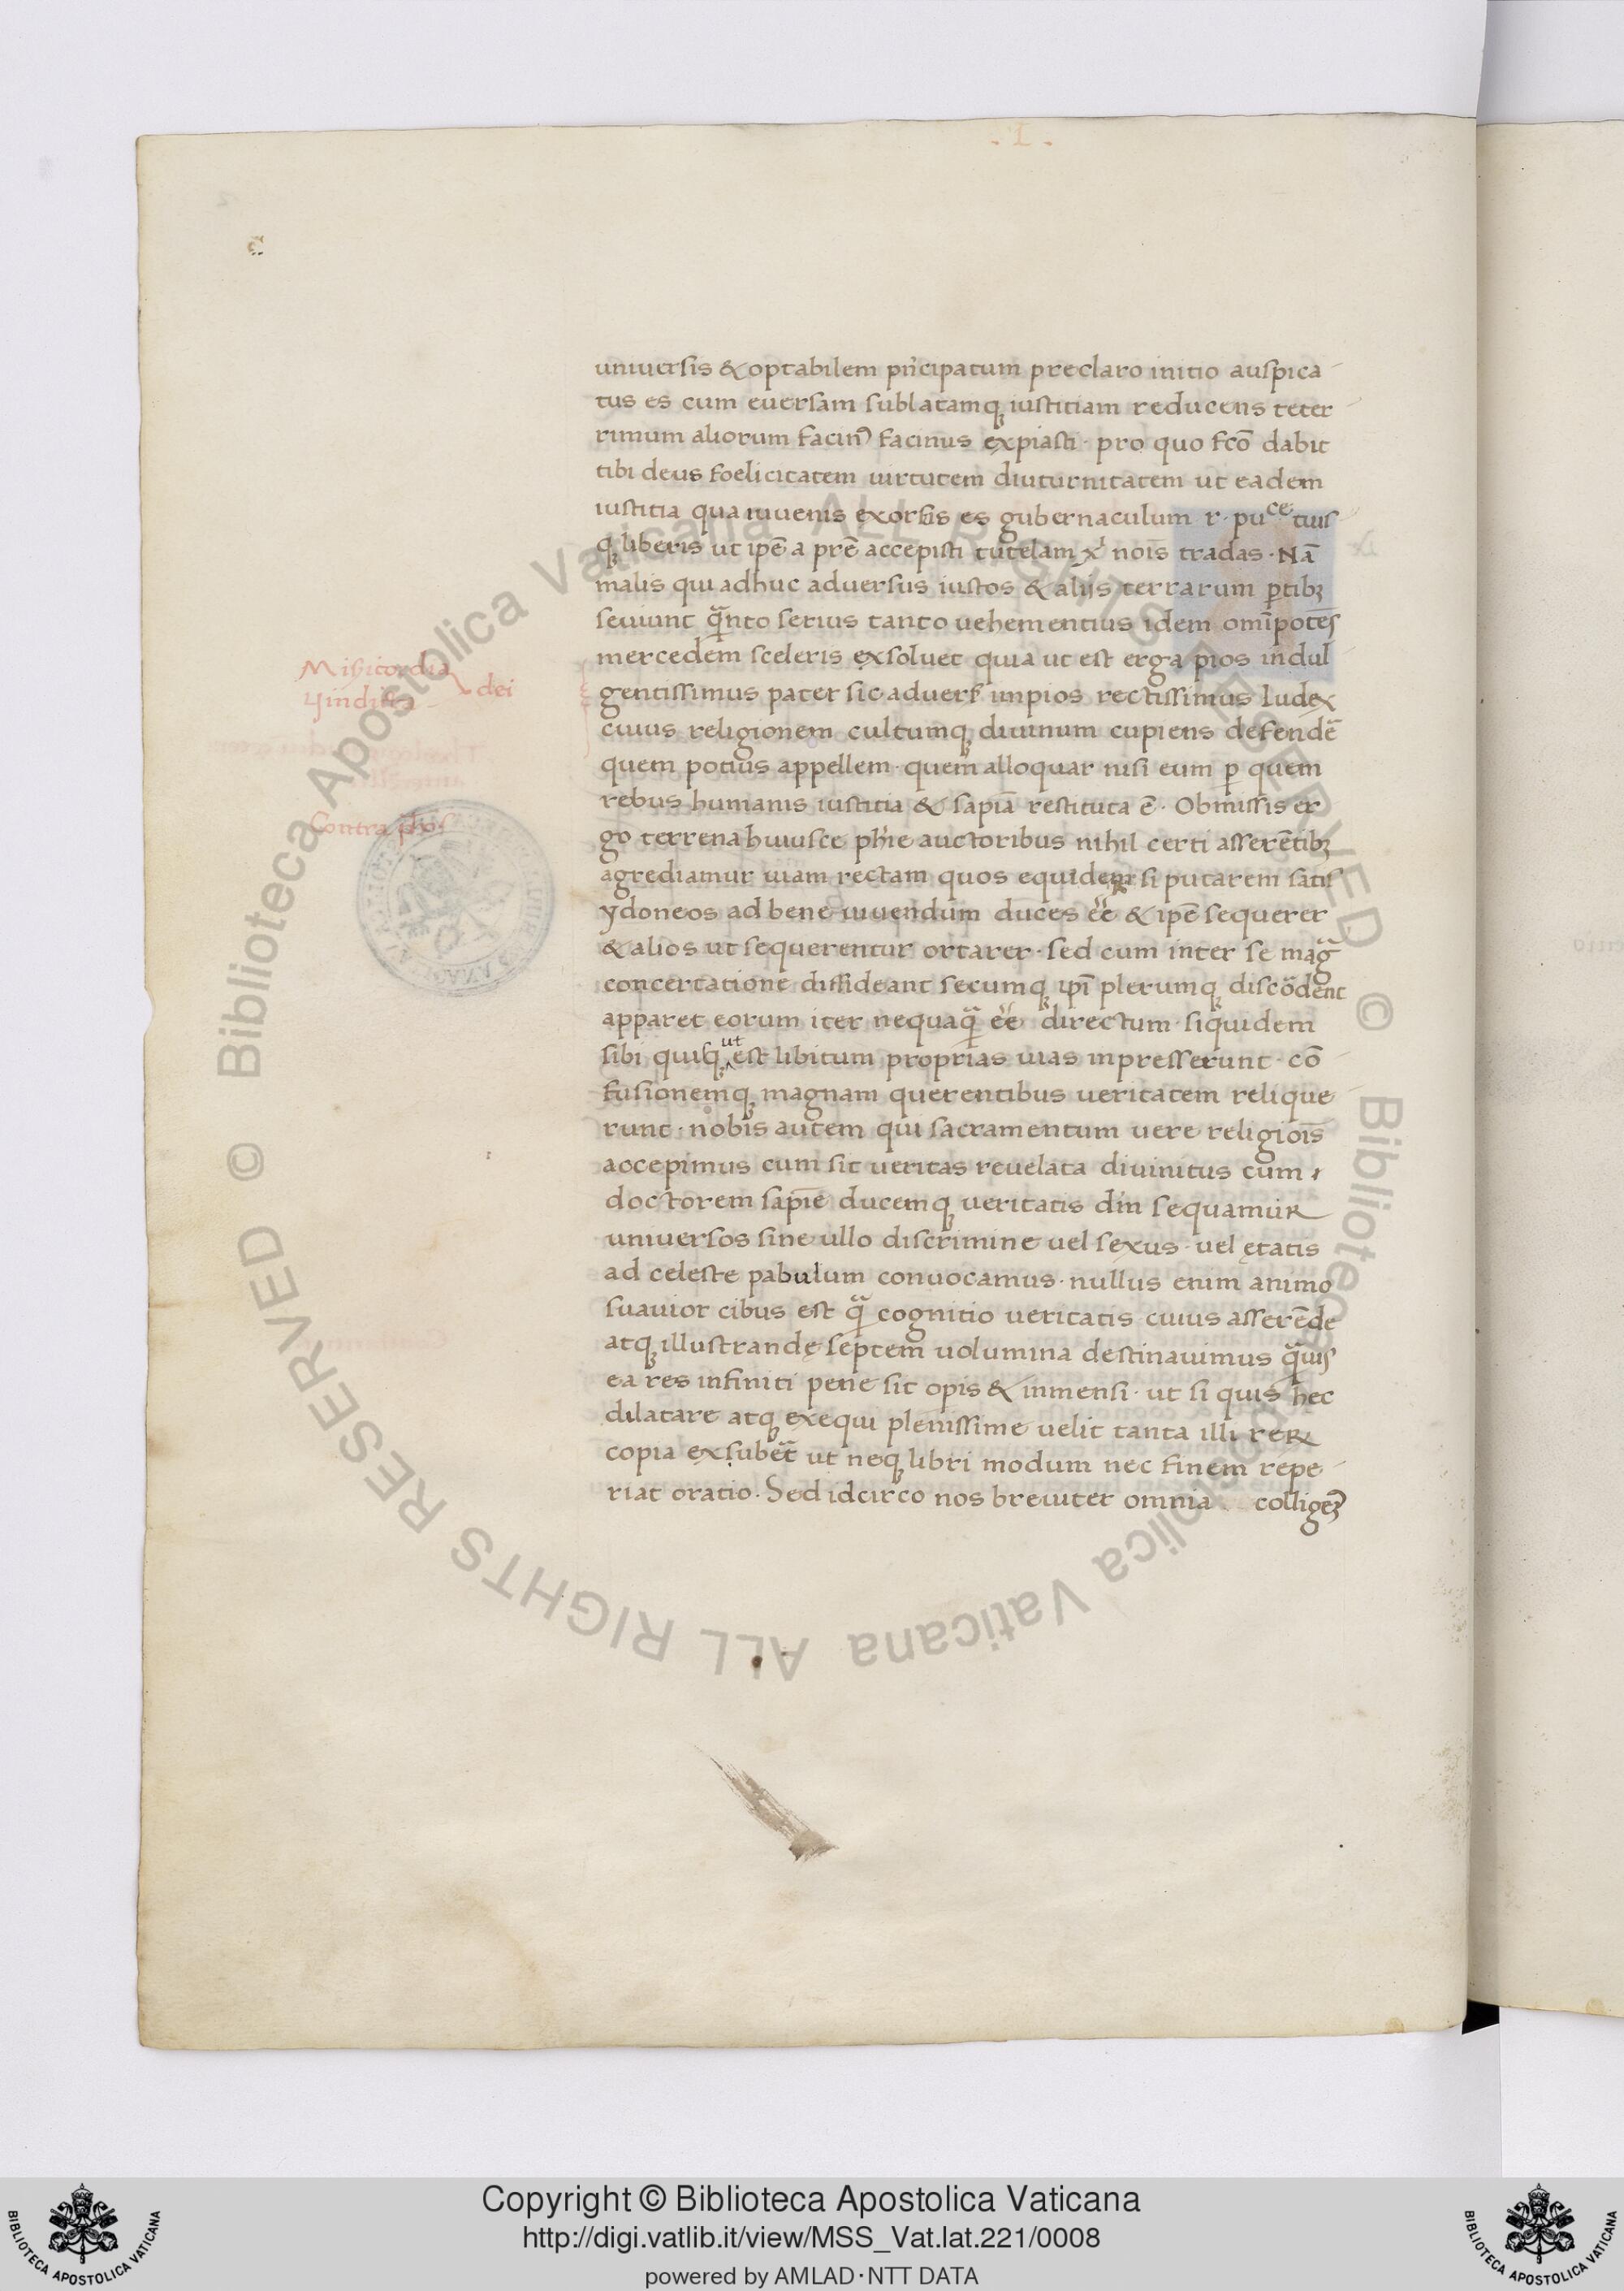 . I .
universis & optabilem pñcipatum preclaro initio auspica
tus es cum eversam sublatamq; iustitiam reducens teter
rimum aliorum facinꝰ facinus expiasti · pro quo fcō dabit
tibi deus foelicitatem uirtutem diuturnitatem ut eadem
iustitia qua iuvenis exorsus es gubernaculum r · pu^ce tuis
q; liberis ut ipē a prē accepisti tutelam noīs tradas · Nā
malis qui adhuc adversus iustos & alijs terrarum ꝑtibꝫ
seviunt q̃nto serius tanto vehementius idem omīpotēs
mercedem sceleris exsoluet quia ut est erga pios indul
Misicordia
Vindicta
dei
gentissimus pater sic adversꝰ impios rectissimus Iudex
cuius religionem cultumq; divinum cupiens defendē
quem potius appellem · quem alloquar nisi eum ꝑ quem
rebus humanis iustitia & sapīa restituta ē · Obmissis er
Contra phos
go terrena huiusce phīe auctoribus nihil certi asserētibꝫ
agrediamur uiam rectam quos equidem si putarem satis
ydoneos ad bene uivendum duces eē & ipē sequerer
& alios ut sequerentur ortarer · sed cum inter se mag̃
concertatione dissideant secumq; ipī plerumq; discōdent
apparet eorum iter nequaq̃ eē directum · siquidem
sibi quisq; ut est libitum proprias uias inpresserunt · cō
fusionemq; magnam querentibus ueritatem relique
runt · nobis autem qui sacramentum vere religiois̄
accepimus cum sit veritas revelata divinitus cum
doctorem sapiē ducemq; veritatis dm̄ sequamur
universos sine ullo discrimine vel sexus · vel ętatis
ad celeste pabulum convocamus · nullus enim animo
suavior cibus est q̃ cognitio veritatis cuius asserēde
atq; illustrandę septem volumina destinavimus q̃vis
ea res infiniti pene sit opis & inmensi · ut si quis hec
dilatare atq; exequi plenissime velit tanta illi reꝝ
copia exsubēt ut neq; libri modum nec finem repe
riat oratio · Sed idcirco nos breviter omnia colligeꝫ
© Biblioteca Apostolica Vaticana ALL RIGHTS RESERVED
© Biblioteca Apostolica Vaticana ALL RIGHTS RESERVED
BIBLIOTECA APOSTOLICA VATICANA
Copyright © Biblioteca Apostolica Vaticana
http://digi.vatlib.it/view/MSS_Vat.lat.221/0008
powered by AMLAD · NTT DATA
BIBLIOTECA APOSTOLICA VATICANA